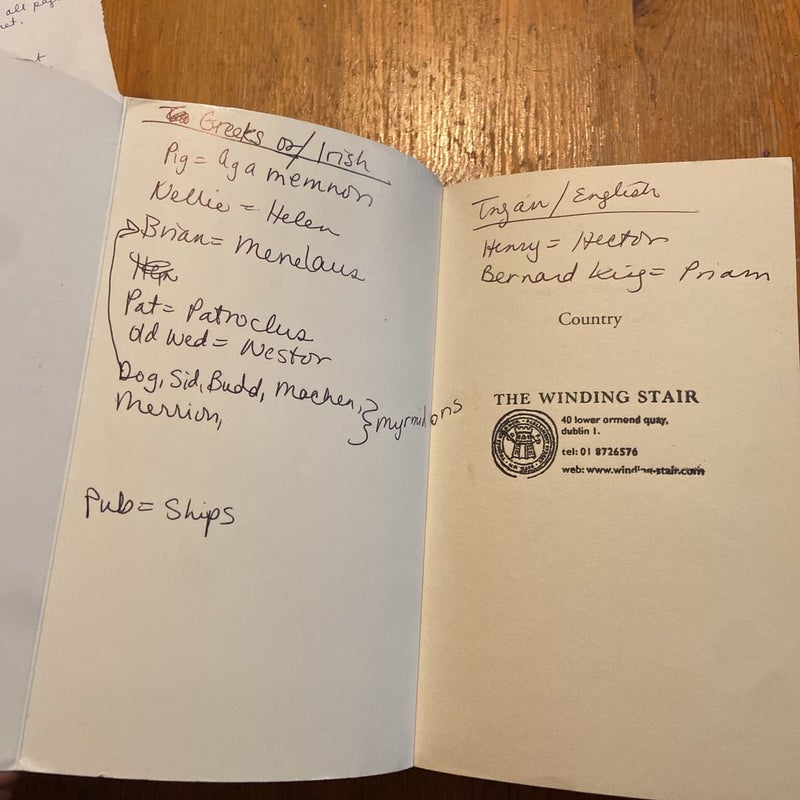 all pag
ret.
Greeks or/Irish
Pig = Agamemnon
Nellie = Helen
Brian = Menelaus
Pat = Patroclus
Old Wed = Nestor
Dog, Sid, Budd, Machen, } Myrmidons
Merrion,
Pub = Ships
Trojan / English
Henry = Hector
Bernard King = Priam
Country
THE WINDING STAIR
40 lower ormond quay,
dublin 1.
tel: 01 8726576
web: www.winding-stair.com